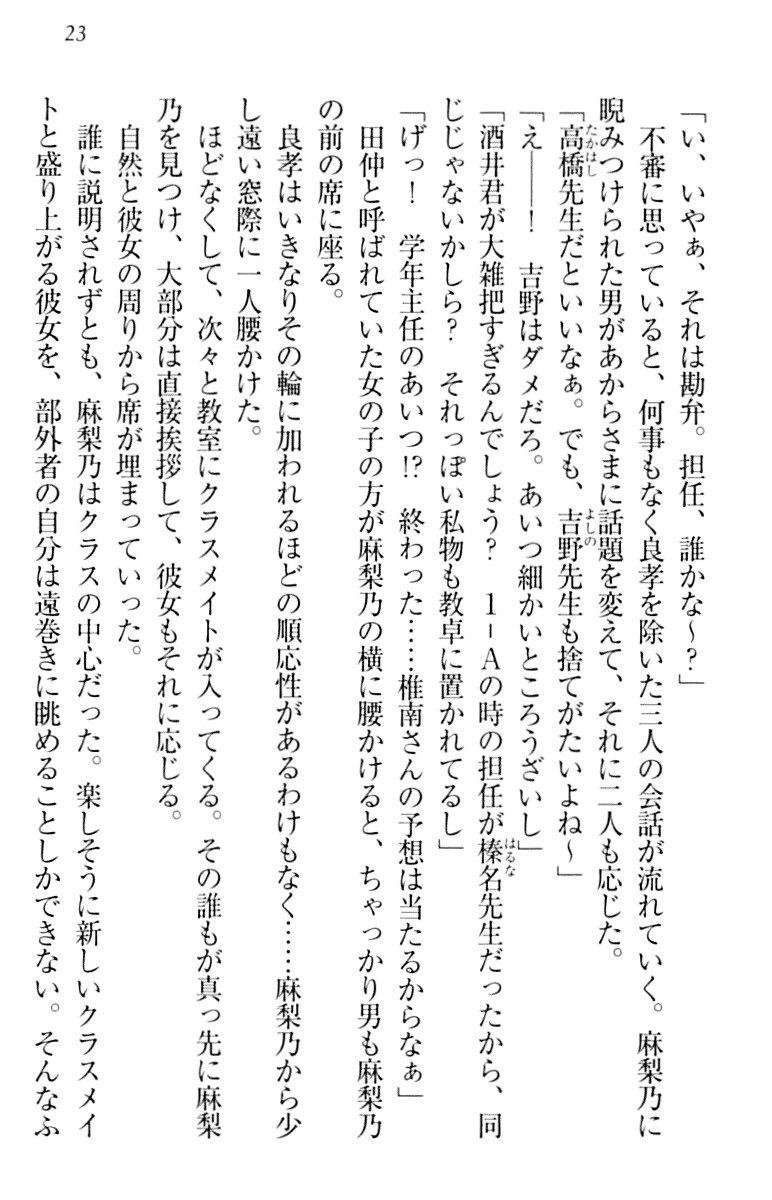 23
「い、いやぁ、それは勘弁。担任、誰かな～？」
　不審に思っていると、何事もなく良孝を除いた三人の会話が流れていく。麻梨乃に
睨みつけられた男があからさまに話題を変えて、それに二人も応じた。
「高橋先生だといいなぁ。でも、吉野先生も捨てがたいよね～」
「え――！　吉野はダメだろ。あいつ細かいところうざいし」
「酒井君が大雑把すぎるんでしょう？　１－Ａの時の担任が榛名先生だったから、同
じじゃないかしら？　それっぽい私物も教卓に置かれてるし」
「げっ！　学年主任のあいつ!?　終わった……椎南さんの予想は当たるからなぁ」
　田仲と呼ばれていた女の子の方が麻梨乃の横に腰かけると、ちゃっかり男も麻梨乃
の前の席に座る。
　良孝はいきなりその輪に加われるほどの順応性があるわけもなく……麻梨乃から少
し遠い窓際に一人腰かけた。
　ほどなくして、次々と教室にクラスメイトが入ってくる。その誰もが真っ先に麻梨
乃を見つけ、大部分は直接挨拶して、彼女もそれに応じる。
　自然と彼女の周りから席が埋まっていった。
　誰に説明されずとも、麻梨乃はクラスの中心だった。楽しそうに新しいクラスメイ
トと盛り上がる彼女を、部外者の自分は遠巻きに眺めることしかできない。そんなふ